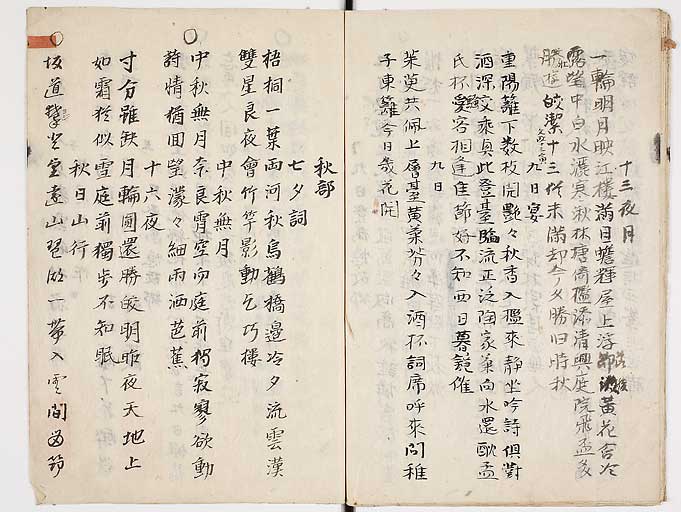 十三夜月
一輪明月映江楼滿目蟾輝屋上浮節後黄花含冷
露望中白水漉寒秋林塘倚檻添清興庭院飛盃多
勝遊皎潔十三所未滿却今又勝旧時秋
九日宴
重陽籬下数枝開艶々秋香入檻來静坐吟詩俱對
酒深交乘真此登臺臨流正泛陶家菊向水還酙孟
氏杯愛客相逢佳節好不知西日暮鐘催
九日
茱萸共佩上層臺黄菊芬々入酒杯詞席呼來問稚
子東籬今日幾花開
秋部
七夕詞
梧桐一葉両河秋烏鵲橋邊冷夕流雲漢
雙星良夜會竹竿影動乞巧楼
中秋無月
中秋無月奈良霄空向庭前独寂寥欲動
詩情猶回望濛々細雨洒芭蕉
十六夜
寸分雖缺月輪圓還勝皎明昨夜天地上
如霜猶似雪庭前獨步不知眠
秋日山行
坂道攀登山一帯入雲間